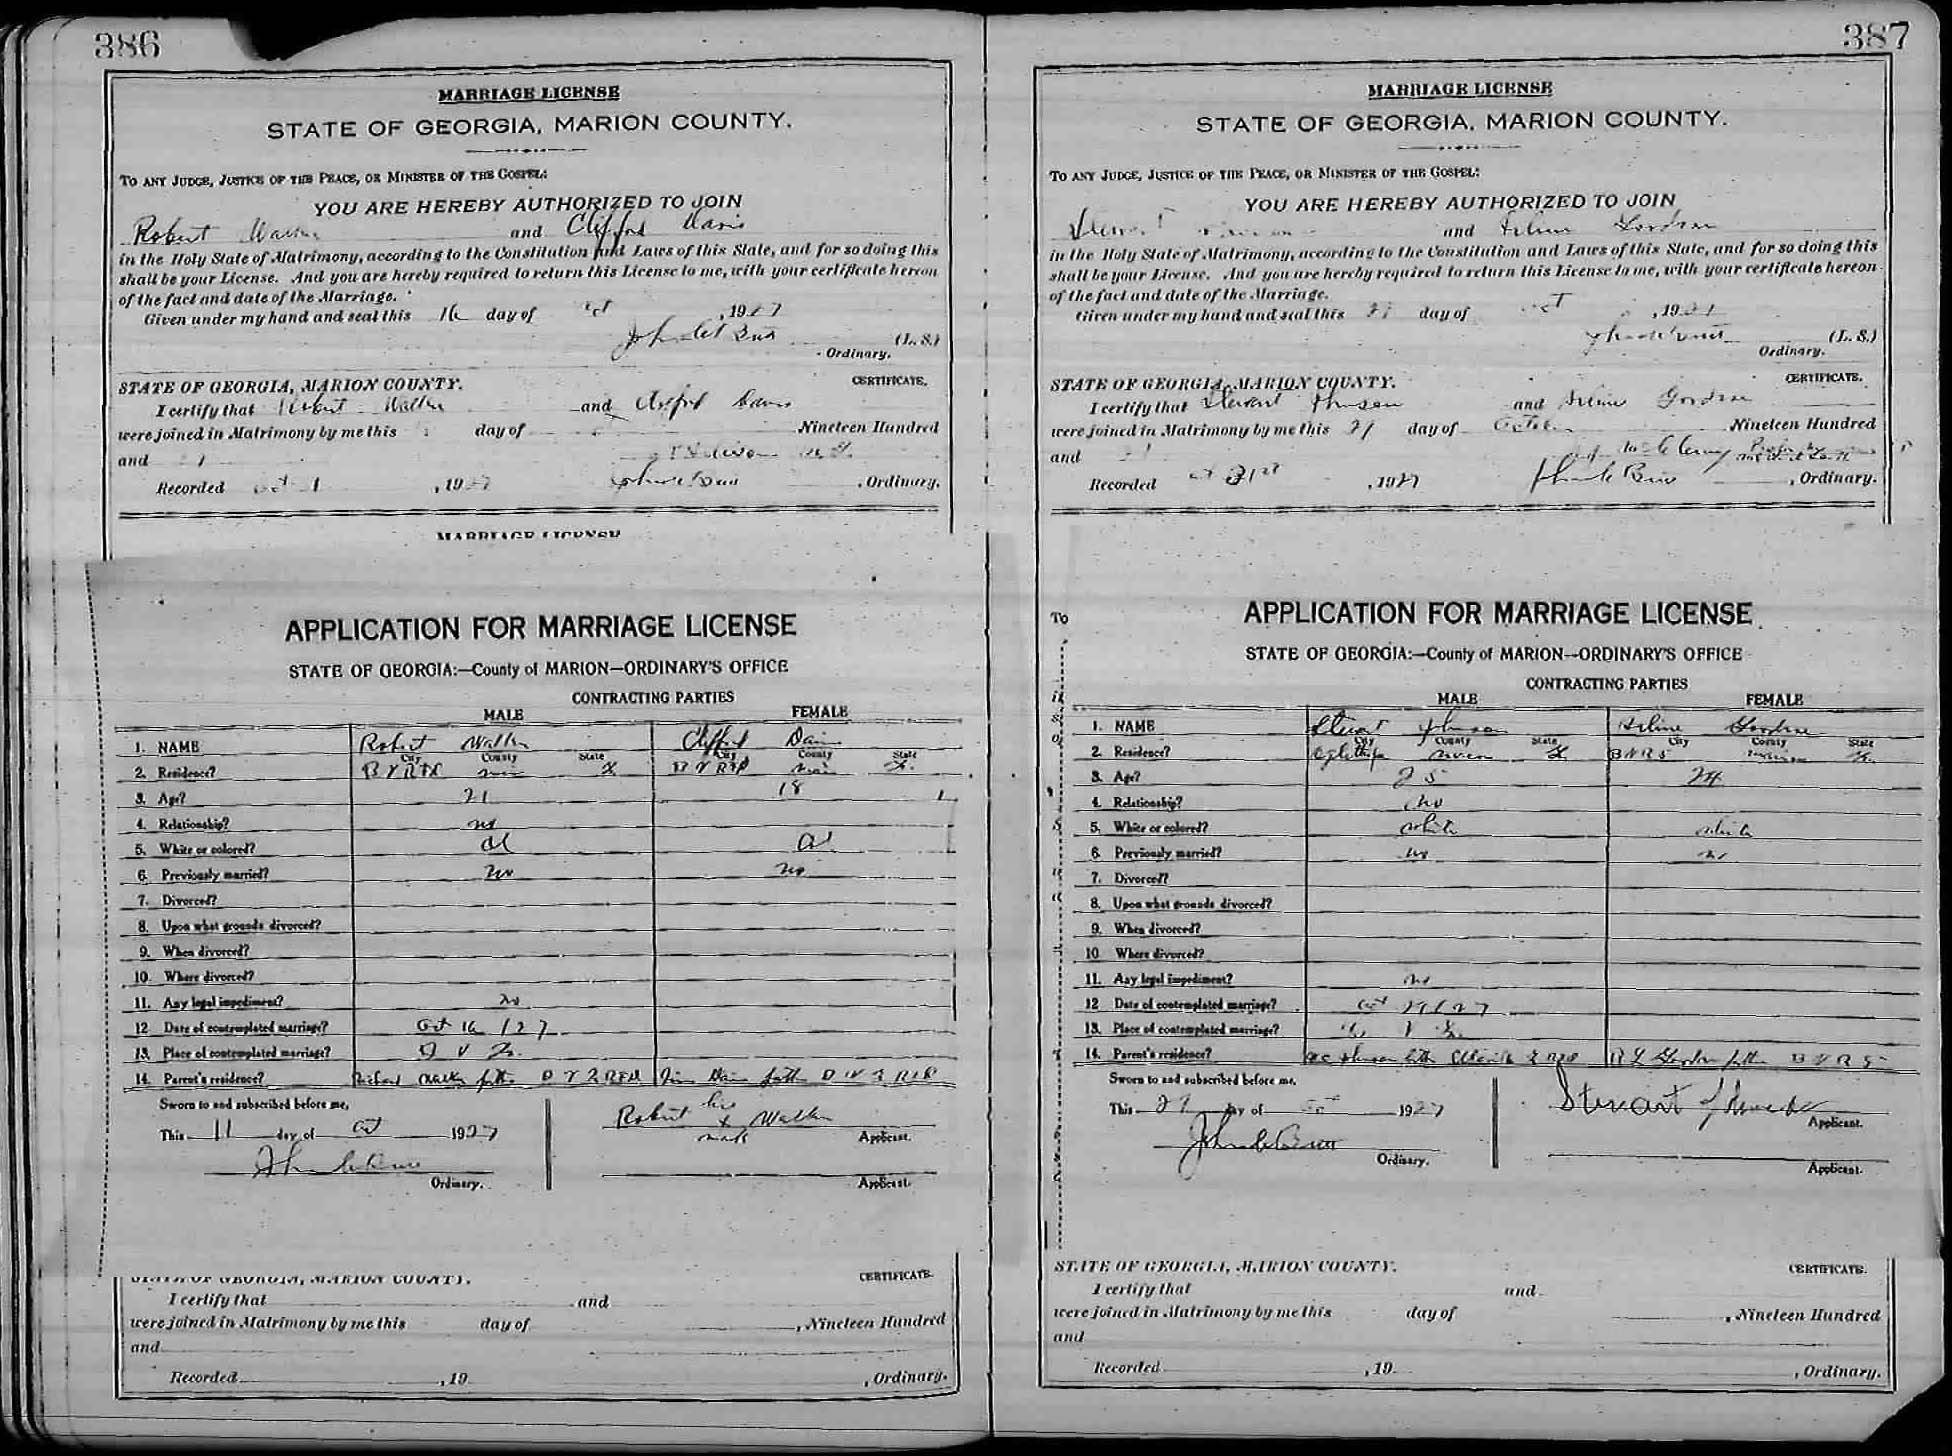 386
MARRIAGE LICENSE
STATE OF GEORGIA, MARION COUNTY.
TO ANY JUDGE, JUSTICE OF THE PEACE, OR MINISTER OF THE GOSPEL:
YOU ARE HEREBY AUTHORIZED TO JOIN
Robert Walker and Clifford Davis
in the Holy State of Matrimony, according to the Constitution and Laws of this State, and for so doing this
shall be your License. And you are hereby required to return this License to me, with your certificate hereon
of the fact and date of the Marriage.
Given under my hand and seal this 16 day of Oct, 1927
(L. S.)
Ordinary.
STATE OF GEORGIA, MARION COUNTY. CERTIFICATE.
I certify that Robert Walker and Clifford Davis
were joined in Matrimony by me this day of Nineteen Hundred
and
Recorded Oct, 1927, Ordinary.
MARRIAGE LICENSE
APPLICATION FOR MARRIAGE LICENSE
STATE OF GEORGIA:—County of MARION—ORDINARY'S OFFICE
CONTRACTING PARTIES
MALE FEMALE
1. NAME Robert Walker Clifford Davis
City County State City County State
2. Residence? B V RFD
3. Age? 21 18
4. Relationship? no
5. White or colored? Col Col
6. Previously married? no no
7. Divorced?
8. Upon what grounds divorced?
9. When divorced?
10. Where divorced?
11. Any legal impediment? no
12. Date of contemplated marriage? Oct 16 / 27
13. Place of contemplated marriage? B V Ga.
14. Parent's residence? Richard Walker father B V Ga RFD Jim Davis father B V Ga RFD
Sworn to and subscribed before me,
This 11 day of Oct 1927
Ordinary.
Robert his x mark Walker
Applicant.
Applicant.
STATE OF GEORGIA, MARION COUNTY. CERTIFICATE.
I certify that and
were joined in Matrimony by me this day of, Nineteen Hundred
and
Recorded, 19, Ordinary.
387
MARRIAGE LICENSE
STATE OF GEORGIA, MARION COUNTY.
TO ANY JUDGE, JUSTICE OF THE PEACE, OR MINISTER OF THE GOSPEL:
YOU ARE HEREBY AUTHORIZED TO JOIN
Stewart and Gordon
in the Holy State of Matrimony, according to the Constitution and Laws of this State, and for so doing this
shall be your License. And you are hereby required to return this License to me, with your certificate hereon
of the fact and date of the Marriage.
Given under my hand and seal this day of Oct, 19
(L. S.)
Ordinary.
STATE OF GEORGIA, MARION COUNTY. CERTIFICATE.
I certify that Stewart Johnson and Gordon
were joined in Matrimony by me this day of October Nineteen Hundred
and
Recorded Oct 31st, 1927, Ordinary.
To
APPLICATION FOR MARRIAGE LICENSE
STATE OF GEORGIA:—County of MARION—ORDINARY'S OFFICE
CONTRACTING PARTIES
MALE FEMALE
1. NAME Stewart Johnson Gordon
City County State City County State
2. Residence? Oglethorpe Macon Ga B V R 5 Marion Ga.
3. Age? 25 24
4. Relationship? no
5. White or colored? white white
6. Previously married? no no
7. Divorced?
8. Upon what grounds divorced?
9. When divorced?
10. Where divorced?
11. Any legal impediment? no
12. Date of contemplated marriage? Oct 29 / 27
13. Place of contemplated marriage? B V Ga.
14. Parent's residence? Johnson father Gordon father B V R 5
Sworn to and subscribed before me,
This 29 day of Oct 1927
Ordinary.
Stewart
Applicant.
Applicant.
STATE OF GEORGIA, MARION COUNTY. CERTIFICATE.
I certify that and
were joined in Matrimony by me this day of, Nineteen Hundred
and
Recorded, 19, Ordinary.